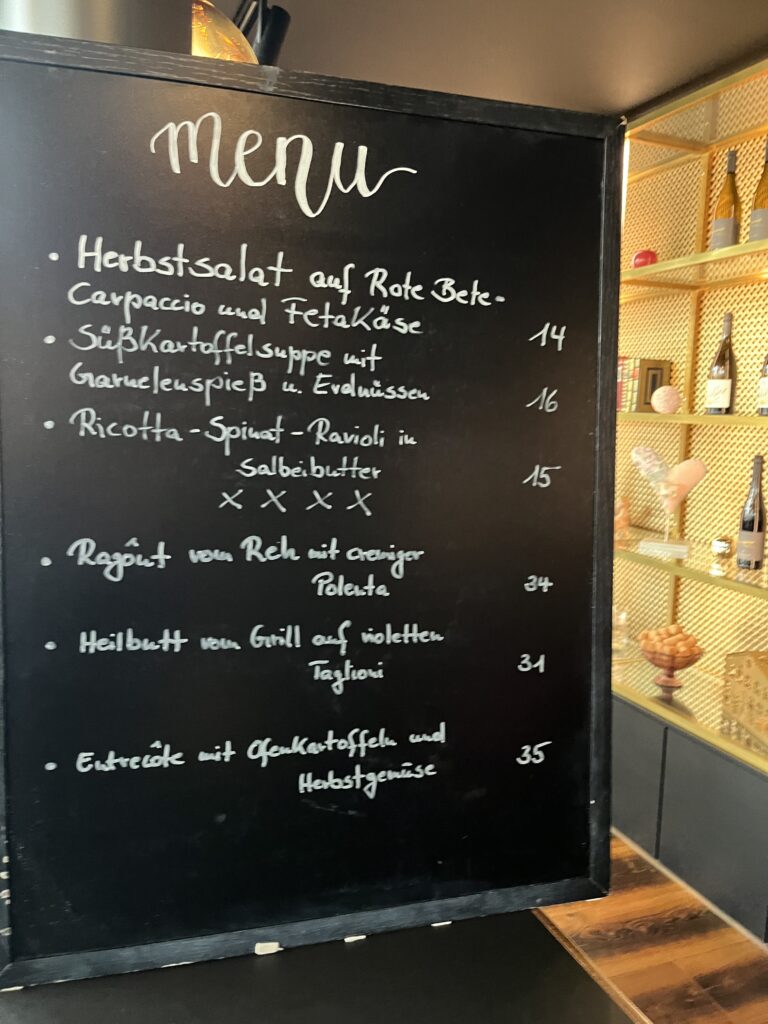 menu
• Herbstsalat auf Rote Bete-
Carpaccio und FetaKäse 14
• Süßkartoffelsuppe mit
Garnelenspieß u. Erdnüssen 16
• Ricotta-Spinat-Ravioli in
Salbeibutter 15
X X X X
• Ragôut vom Reh mit cremiger
Polenta 34
• Heilbutt vom Grill auf violetten
Taglioni 31
• Entrecôte mit Ofenkartoffeln und
Herbstgemüse 35